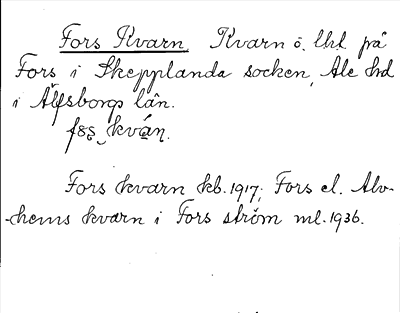 Fors Kvarn. Kvarn o. lht på
Fors i Skepplanda socken, Ale hd
i Älfsborgs län.
fo̤s̤ kván.
Fors kvarn kb. 1917; Fors el. Alv-
hems kvarn i Fors ström ml. 1936.